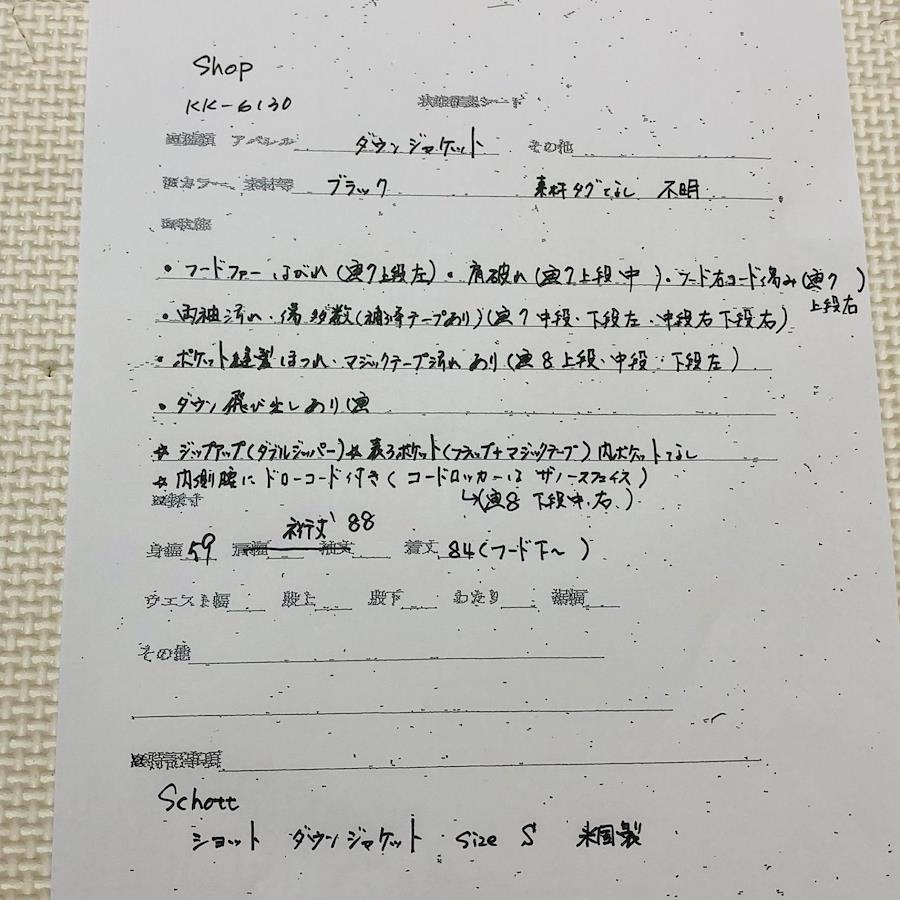 Shop
KK-6130 状態確認シート
アパレル ダウンジャケット その他
カラー、素材等 ブラック 素材タグなし 不明
状態
・フードファーはがれ(画7上段左)・肩破れ(画7上段中)・フード右コード傷み(画7上段右)
・両袖汚れ・傷多数(補修テープあり)(画7 中段・下段左・中段右下段右)
・ポケット縫製ほつれ・マジックテープ汚れあり(画8上段・中段・下段左)
・ダウン飛び出しあり(画
☆ジップアップ(ダブルジッパー)☆表3ポケット(フラップ+マジックテープ)内ポケットなし
☆内側腰にドローコード付き(コードロッカーは ザノースフェイス)
↳(画8 下段中、右)
裄丈 88
身幅 59 肩幅 袖丈 着丈 84(フード下〜)
ウエスト幅 股上 股下 わたり 裾幅
その他
特記事項
Schott
ショット ダウンジャケット size S 米国製